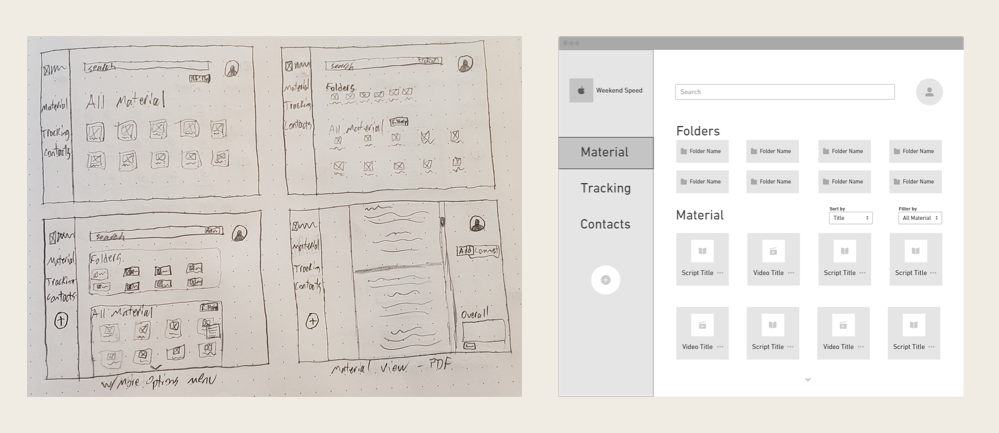 search
All Material
Material
Tracking
Contacts
search
Folders
All Material
Material
Tracking
Contacts
search
Folders
All Material
Material
Tracking
Contacts
w/ More Options menu
Material
Tracking
Contacts
Add Comment
Overall
Material view - PDF
Weekend Speed
Search
Material
Tracking
Contacts
Folders
Folder Name Folder Name Folder Name Folder Name
Folder Name Folder Name Folder Name Folder Name
Material
Sort by
Title
Filter by
All Material
Script Title Video Title Script Title Script Title
Video Title Script Title Video Title Script Title